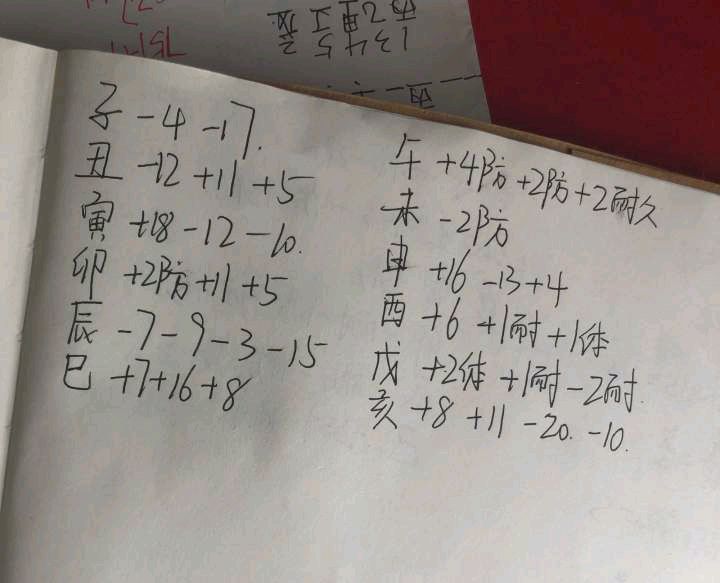 子 -4 -17.
丑 -12 +11 +5
寅 +18 -12 -10.
卯 +2防 +11 +5
辰 -7 -9 -3 -15
巳 +7 +16 +8
午 +4防 +2防 +2耐久
未 -2防
申 +16 -13 +4
酉 +6 +1耐 +1体
戌 +2体 +1耐 -2耐.
亥 +8 +11 -20. -10.
1 3 4 5 2